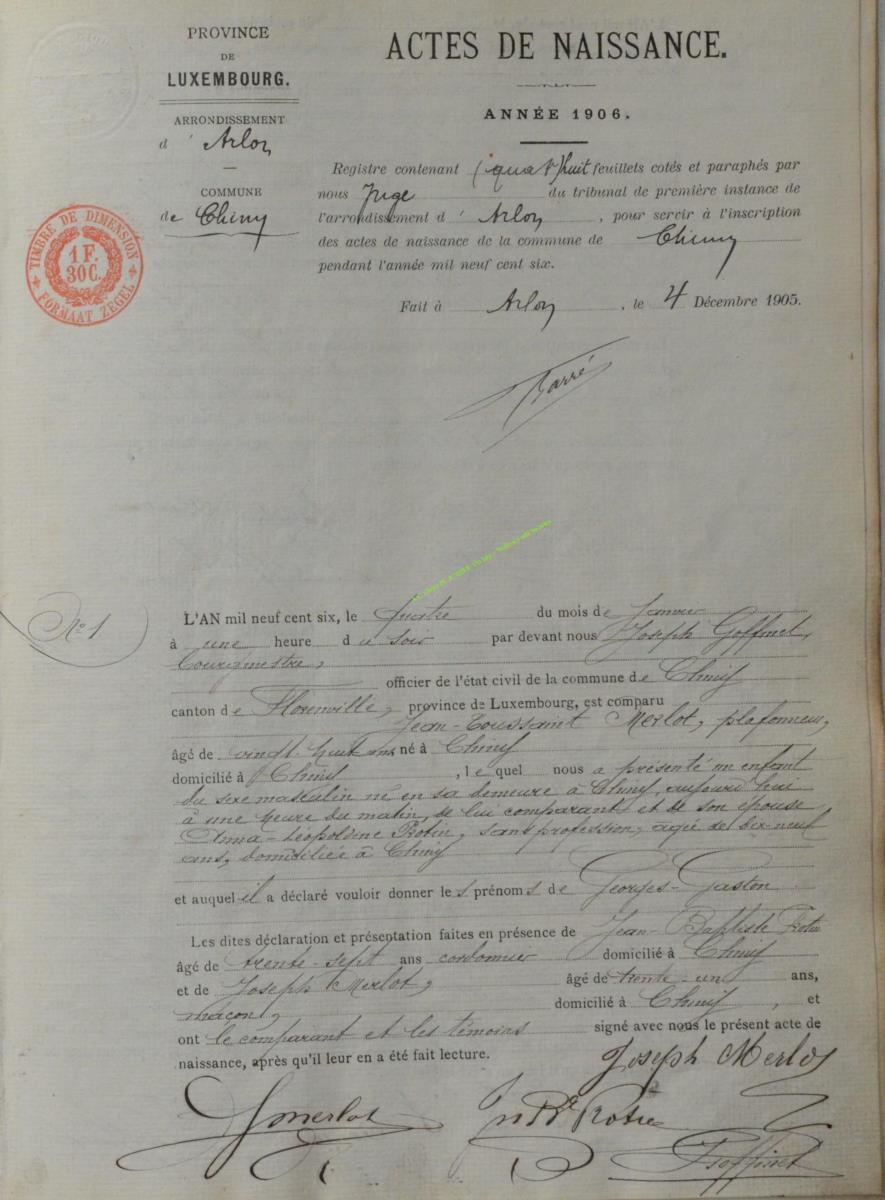 PROVINCE
DE
LUXEMBOURG.
ARRONDISSEMENT
d' Arlon
COMMUNE
de Chiny
TIMBRE DE DIMENSION
1 F.
30C.
FORMAAT ZEGEL
ACTES DE NAISSANCE.
ANNÉE 1906.
Registre contenant (quat) huit feuillets cotés et paraphés par
nous Juge du tribunal de première instance de
l'arrondissement d' Arlon, pour servir à l'inscription
des actes de naissance de la commune de Chiny
pendant l'année mil neuf cent six.
Fait à Arlon, le 4 Décembre 1905.
Barré
N° 1
L'AN mil neuf cent six, le quatre du mois de Janvier
à une heure du soir par devant nous Joseph Goffinet,
bourgmestre,
officier de l'état civil de la commune de Chiny
canton de Florenville, province de Luxembourg, est comparu
Jean-Toussaint Merlot, plafonneur,
âgé de vingt huit ans né à Chiny
domicilié à Chiny, lequel nous a présenté un enfant
du sexe masculin né en sa demeure à Chiny, aujourd'hui
à une heure du matin, de lui comparant et de son épouse
Anna-Léopoldine Rotin, sans profession, agée de dix-neuf
ans, domiciliée à Chiny
et auquel il a déclaré vouloir donner les prénoms de Georges-Gaston
Les dites déclaration et présentation faites en présence de Jean-Baptiste Rotin
âgé de trente-sept ans cordonnier domicilié à Chiny
et de Joseph Merlot, âgé de trente-un ans,
maçon, domicilié à Chiny, et
ont le comparant et les témoins signé avec nous le présent acte de
naissance, après qu'il leur en a été fait lecture.
Joseph Merlot
J Merlot
Jn Bte Rotin
J Goffinet